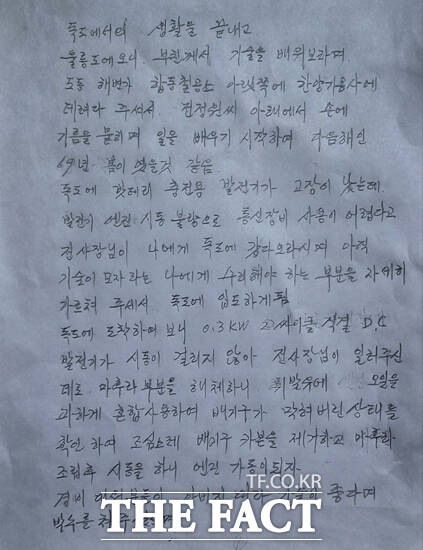 독도에서의 생활을 끝내고
울릉도에 오니 부친께서 기술을 배워보라며
도동 해변가 합동철공소 아랫쪽에 찬양기름사에
데려다 주셔서 전정원씨 아래에서 손에
기름을 묻히며 일을 배우기 시작하여 다음해인
69년 봄이 였을것 같음
독도에 밧테리 충전용 발전기가 고장이 났는데
발전기 엔진 시동 불량으로 통신장비 사용이 어렵다고
전사장님이 나에게 독도에 갔다오라시며 아직
기술이 모자라는 나에게 수리해야 하는 부분을 자세히
가르쳐 주셔서 독도에 입도하게 됨
독도에 도착하여 보니 0.3KW 2싸이클 직결 D.C
발전기가 시동이 걸리지 않아 전사장님이 일러주신
데로 마후라 부분을 해체하니 휘발유에 오일을
과하게 혼합사용하여 배기구가 막혀버린 상태를
확인하여 조심스레 배기구 카본을 제거하고 마후라
조립후 시동을 하니 엔진 가동이되자
경비 좋다며
박수를
TF.CO.KR
THE FACT